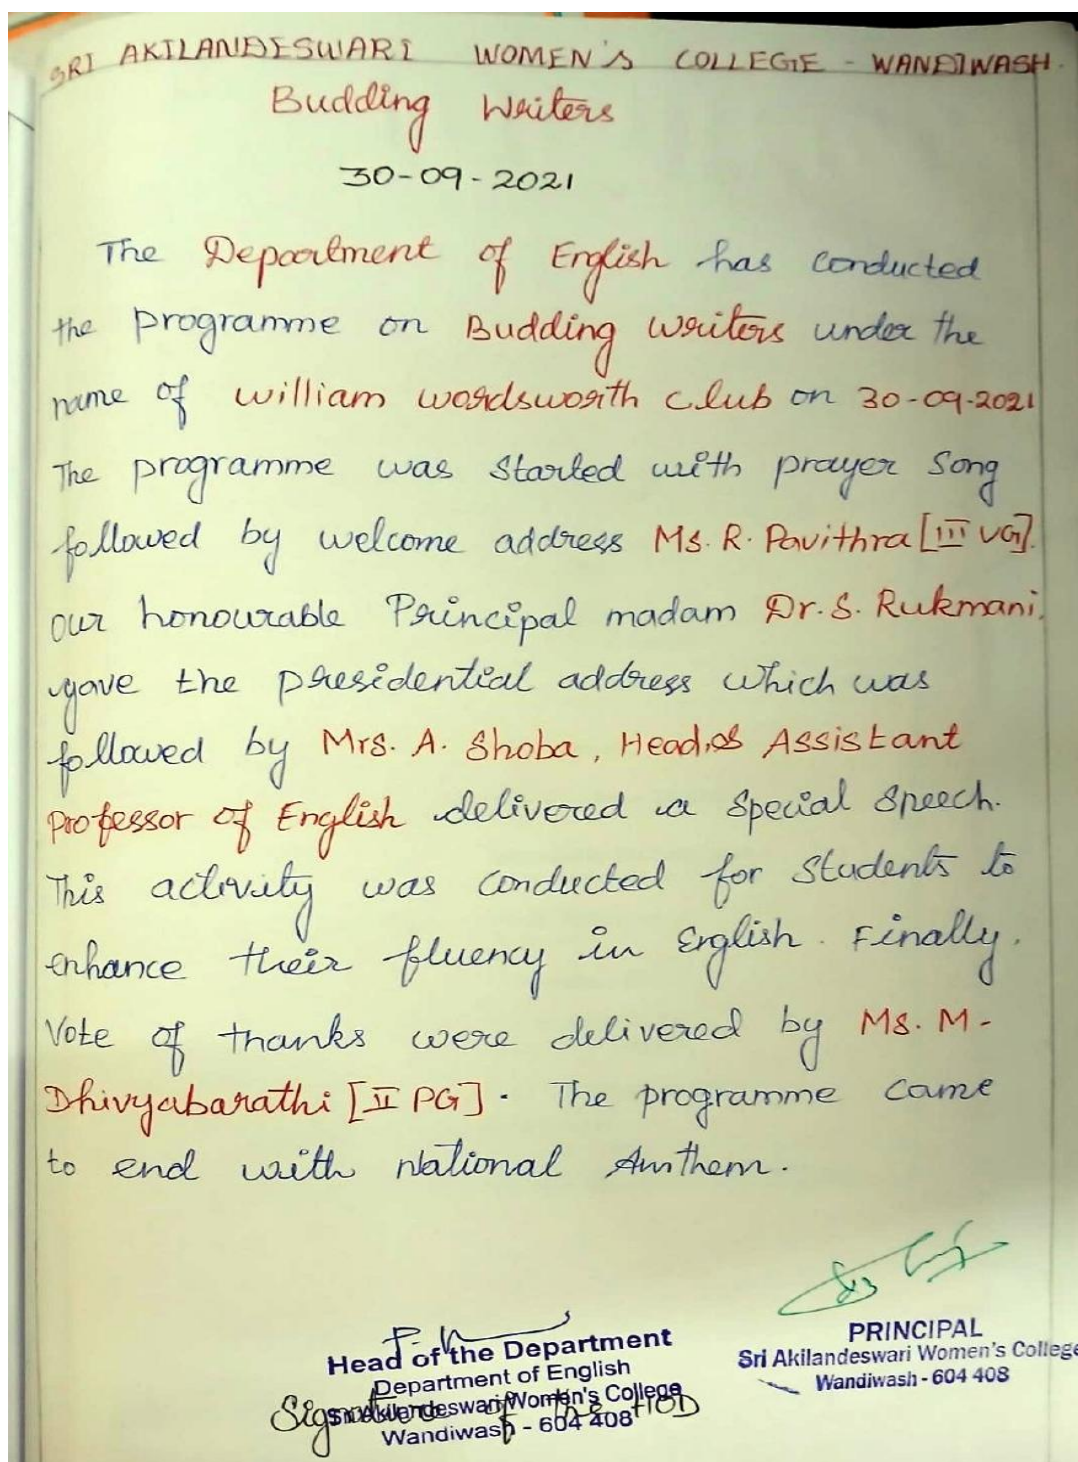 SRI AKILANDESWARI WOMEN'S COLLEGE - WANDIWASH.
Budding Writers
30-09-2021
The Department of English has conducted
the programme on Budding writers under the
name of william wordsworth club on 30-09-2021
The programme was started with prayer song
followed by welcome address Ms. R. Pavithra [III UG].
our honourable Principal madam Dr. S. Rukmani,
gave the presidential address which was
followed by Mrs. A. Shoba, Head, Assistant
Professor of English delivered a special speech.
This activity was conducted for students to
enhance their fluency in English. Finally,
Vote of thanks were delivered by Ms. M-
Dhivyabarathi [II PG]. The programme came
to end with National Anthem.
Head of the Department
Department of English
Sri Akilandeswari Women's College
Wandiwash - 604 408
Signature of the HOD
PRINCIPAL
Sri Akilandeswari Women's College
Wandiwash - 604 408